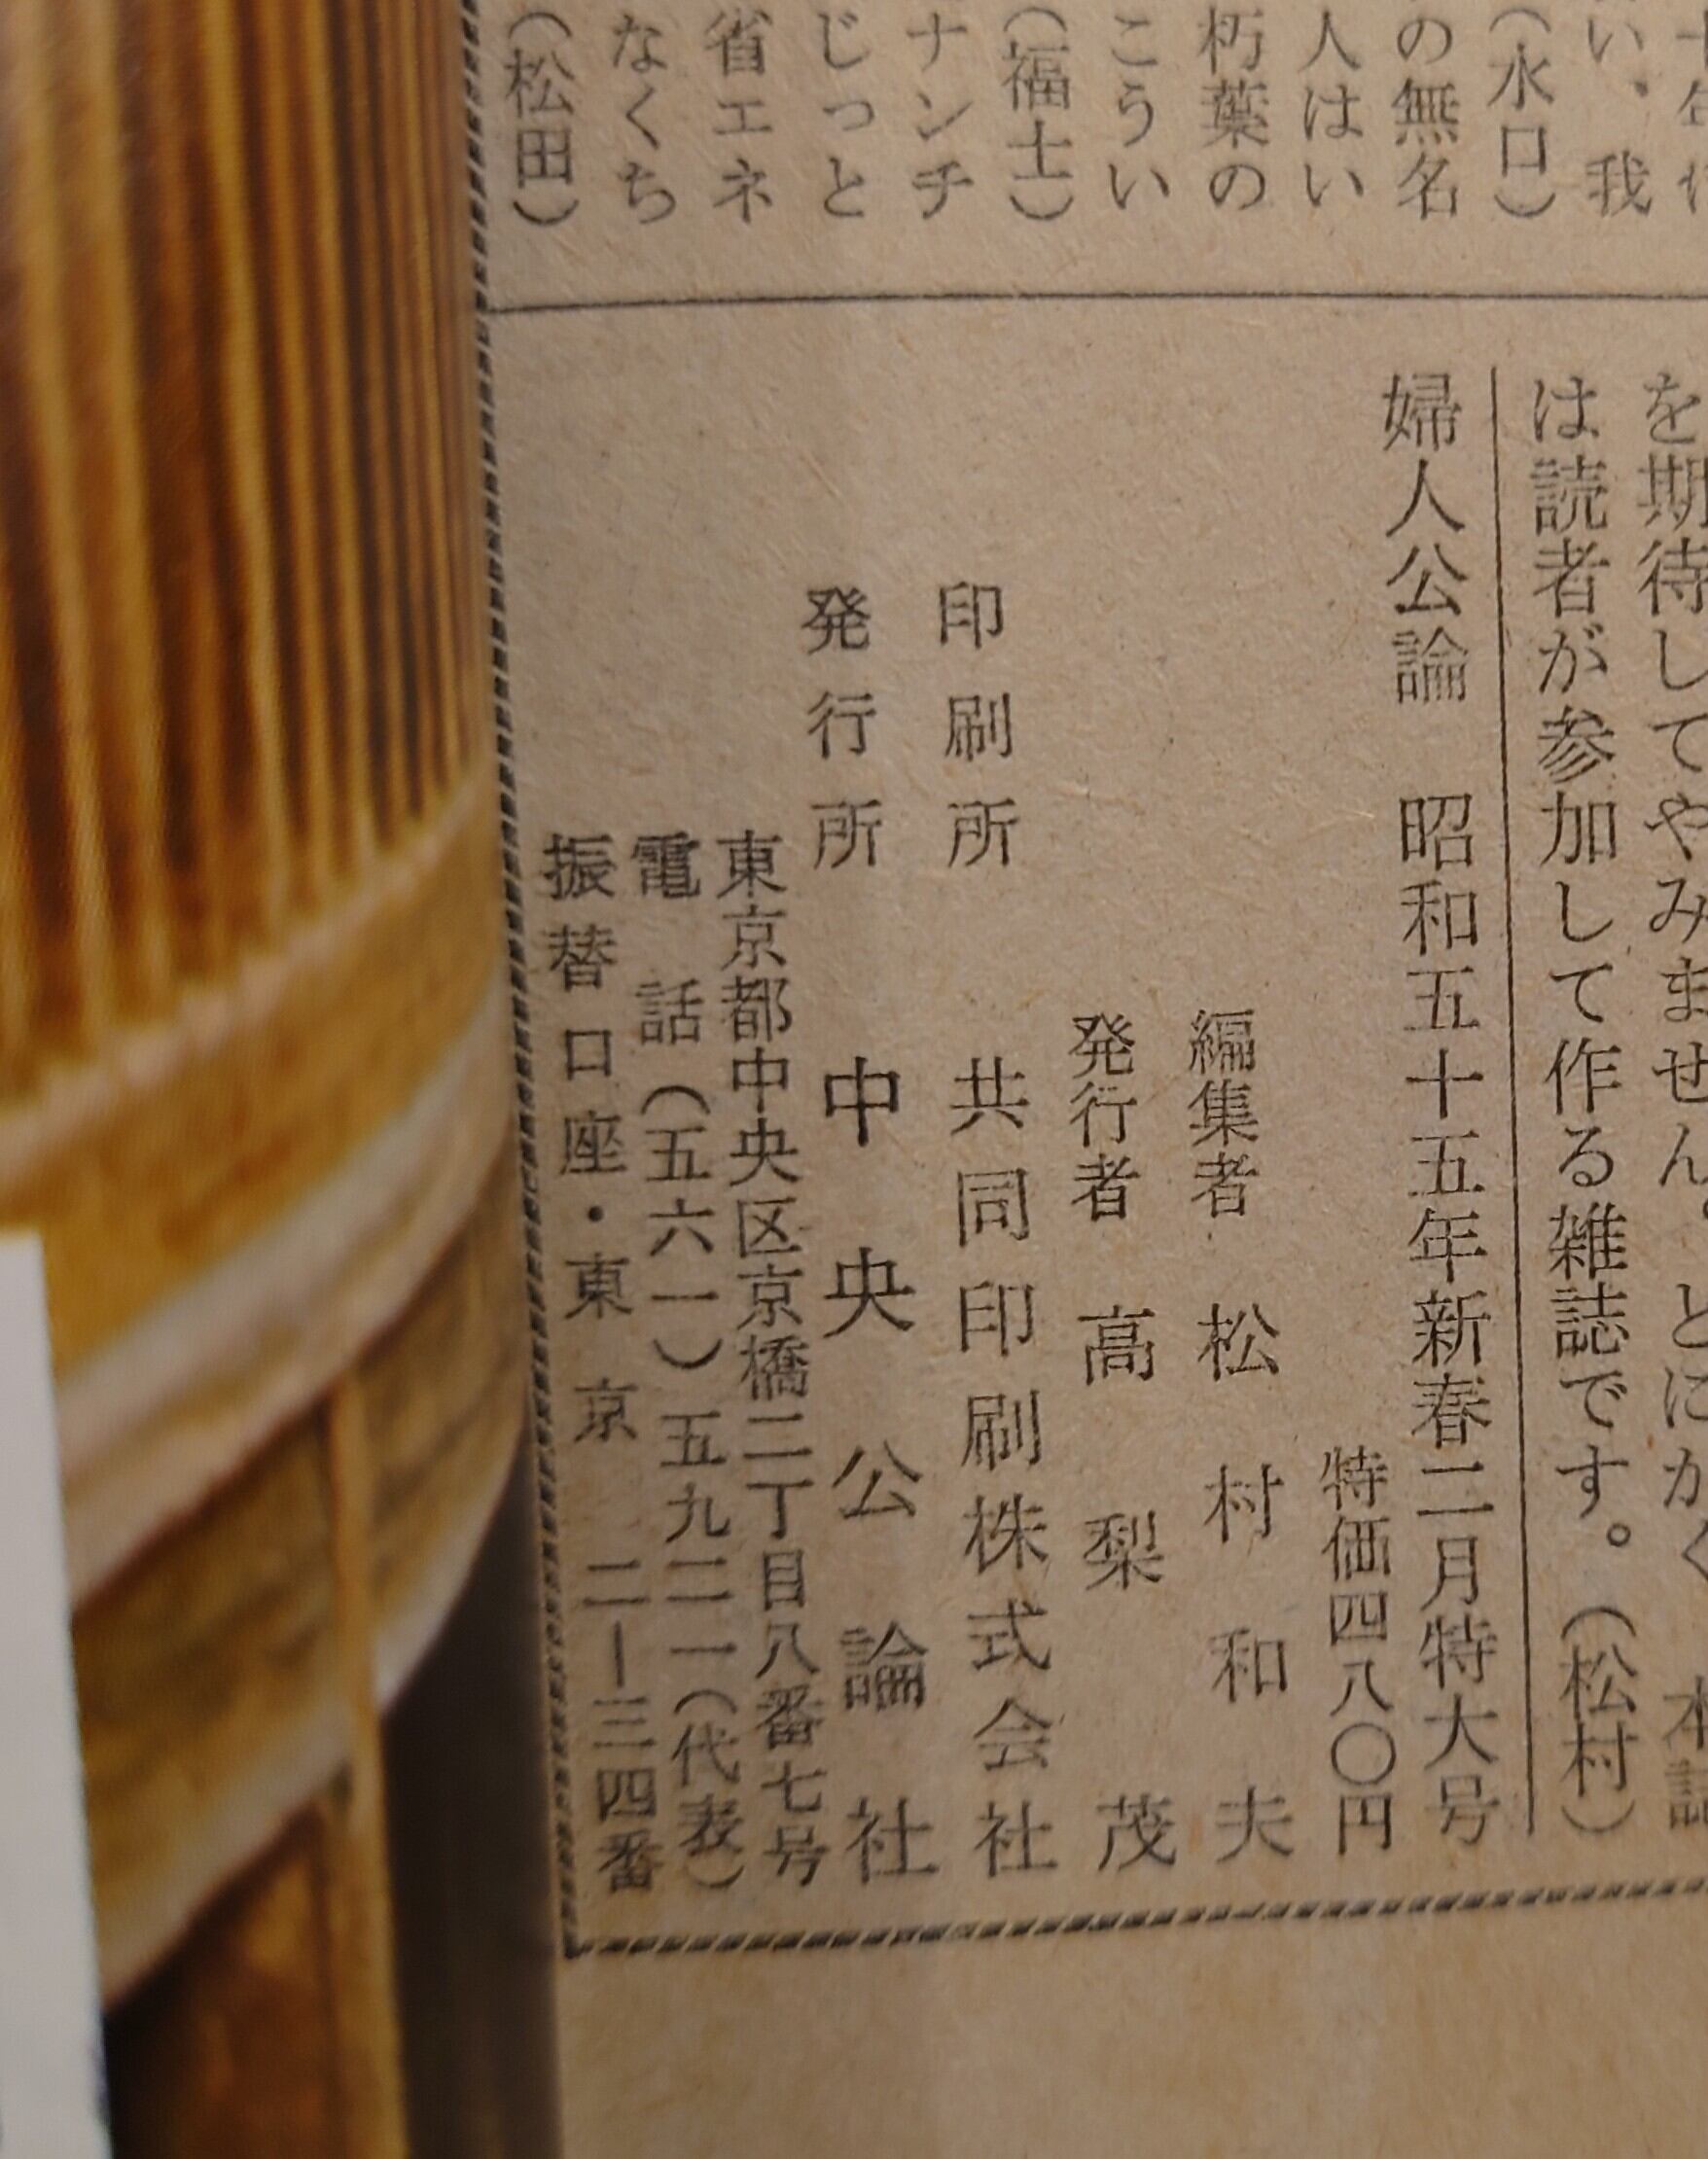 い、我
（水口）
の無名
人はい
朽葉の
こうい
（福士）
ナンチ
じっと
省エネ
なくち
（松田）
を期待してやみません。とにかく　本誌
は読者が参加して作る雑誌です。（松村）
婦人公論　昭和五十五年新春二月特大号
特価四八〇円
編集者　松村和夫
発行者　高梨茂
印刷所　共同印刷株式会社
発行所　中央公論社
東京都中央区京橋二丁目八番七号
電話（五六一）五九二一（代表）
振替口座・東京　二―三四番